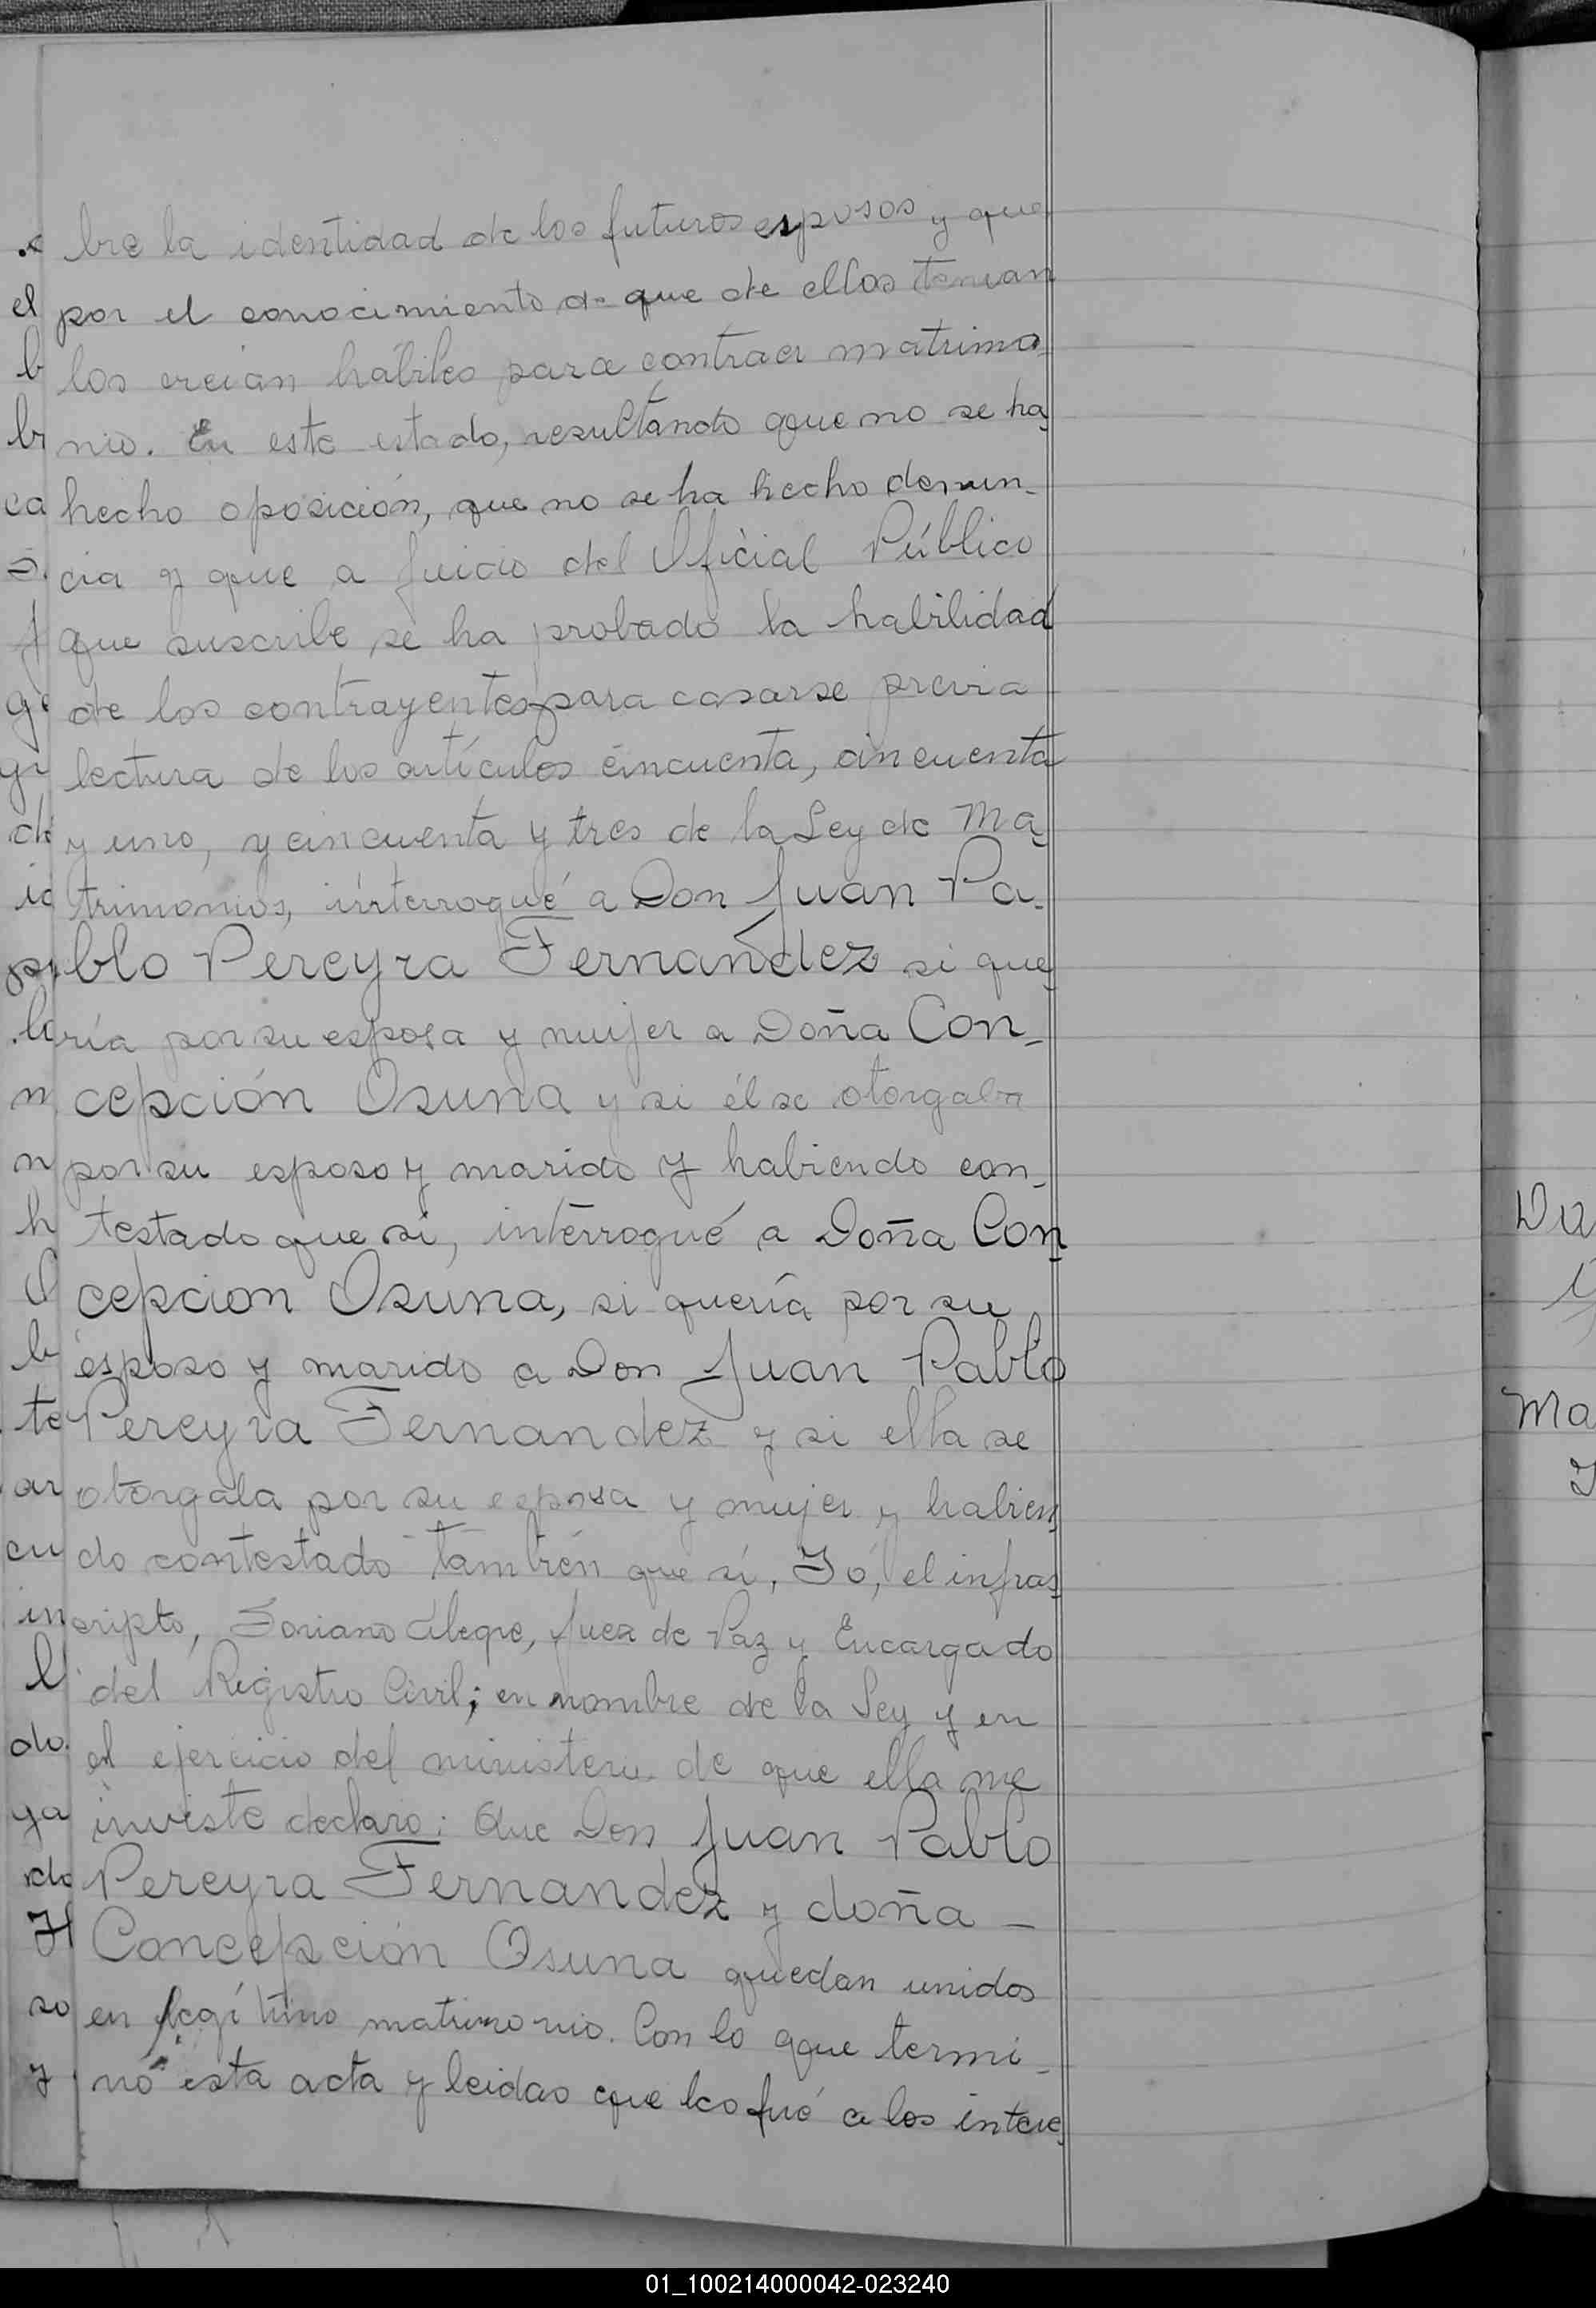 bre la identidad de los futuros esposos y que
por el conocimiento de que de ellos tenian
los creian hábiles para contraer matrimo-
nio. En este estado, resultando que no se ha
hecho oposición, que no se ha hecho denun-
cia y que a juicio del Oficial Público
que suscribe se ha probado la habilidad
de los contrayentes para casarse previa
lectura de los artículos cincuenta, cincuenta
y uno, y cincuenta y tres de la Ley de Ma-
trimonios, interrogué a Don Juan Pa-
blo Pereyra Fernandez si que-
ría por su esposa y mujer a Doña Con-
cepción Osuna y si él se otorgaba
por su esposo y marido y habiendo con-
testado que sí, interrogué a Doña Con-
cepcion Osuna, si quería por su
esposo y marido a Don Juan Pablo
Pereyra Fernandez y si ella se
otorgaba por su esposa y mujer y habien-
do contestado también que sí, Yó, el infras-
cripto, Soriano Alegre, Juez de Paz y Encargado
del Registro Civil; en nombre de la Ley y en
el ejercicio del ministerio de que ella me
inviste declaro: Que Don Juan Pablo
Pereyra Fernandez y doña -
Concepción Osuna quedan unidos
en legítimo matrimonio. Con lo que termi-
nó esta acta y leidas que les fué a los intere-
01_100214000042-023240